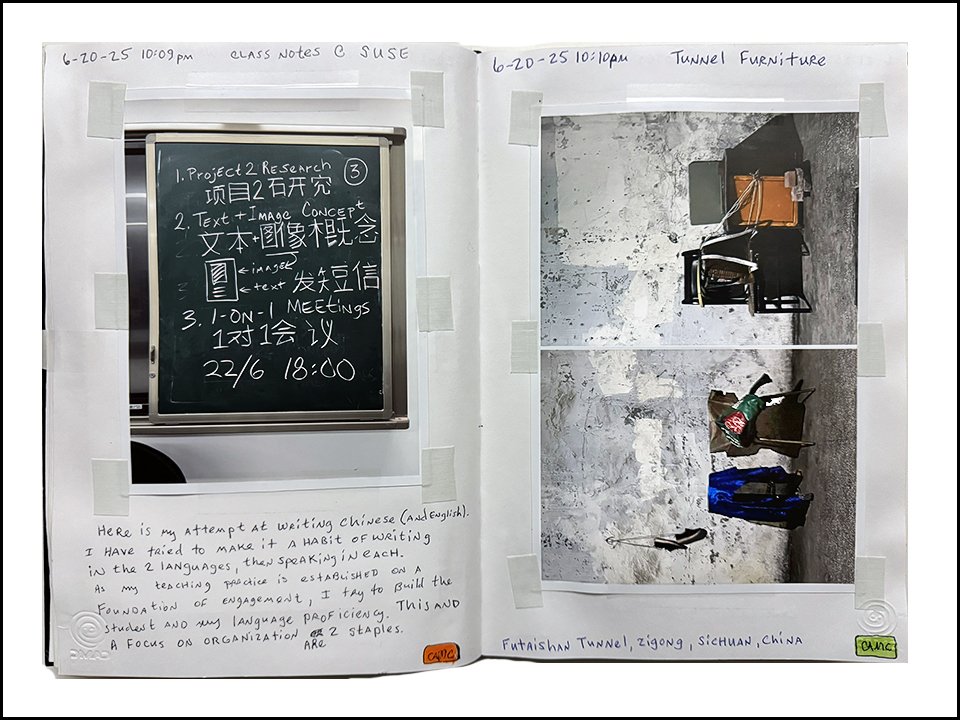 6-20-25 10:09pm CLASS NOTES @ SUSE
1. PROJECT 2 RESEARCH ③
项目2石开究
2. TEXT + IMAGE CONCEPT
文本+图像概念
←image
←text 发短信
3. 1-ON-1 MEETINGS
1对1会议
22/6 18:00
HERE IS MY ATTEMPT AT WRITING CHINESE (AND ENGLISH).
I HAVE TRIED TO MAKE IT A HABIT OF WRITING
IN THE 2 LANGUAGES, THEN SPEAKING IN EACH.
AS MY TEACHING PRACTICE IS ESTABLISHED ON A
FOUNDATION OF ENGAGEMENT, I TRY TO BUILD THE
STUDENT AND MY LANGUAGE PROFICIENCY. THIS AND
A FOCUS ON ORGANIZATION ARE 2 STAPLES.
DMAD
CAMC
6-20-25 10:10pm TUNNEL FURNITURE
FUTAISHAN TUNNEL, ZIGONG, SICHUAN, CHINA
CAMC